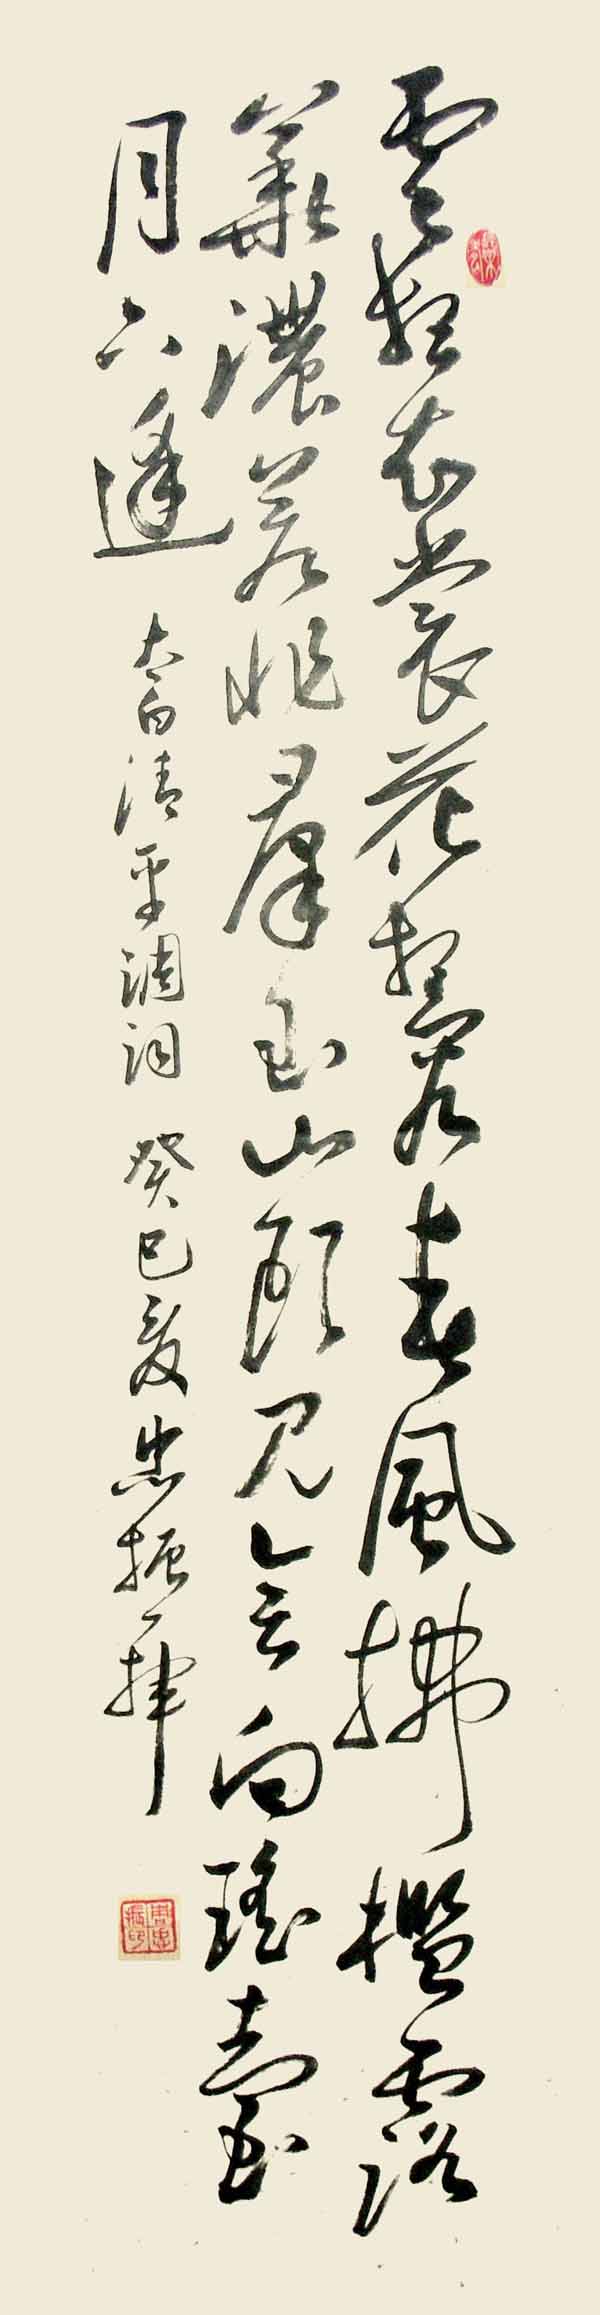 雲想衣裳花想容春風拂檻露
華濃若非羣玉山頭見會向瑤臺
月下逢 太白清平調詞 癸巳夏忠振揮
周忠振印